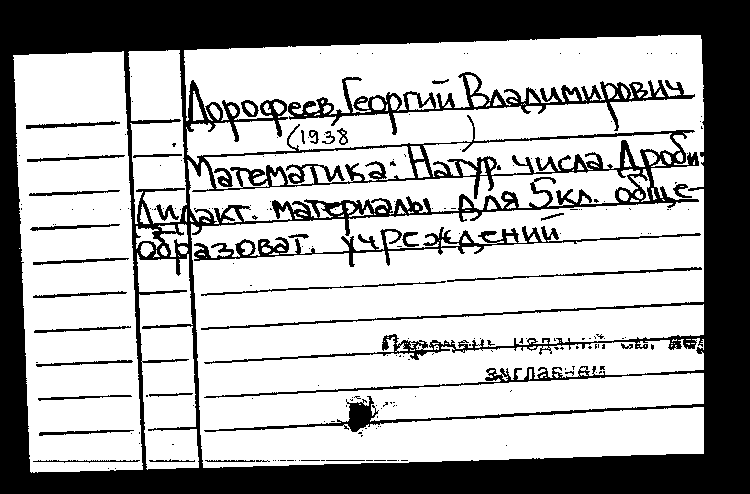 Дорофеев, Георгий Владимирович
(1938 )
Математика: Натур. числа. Дроби:
Дидакт. материалы для 5кл. обще-
образоват. учреждений
Перечень изданий см. под
заглавием